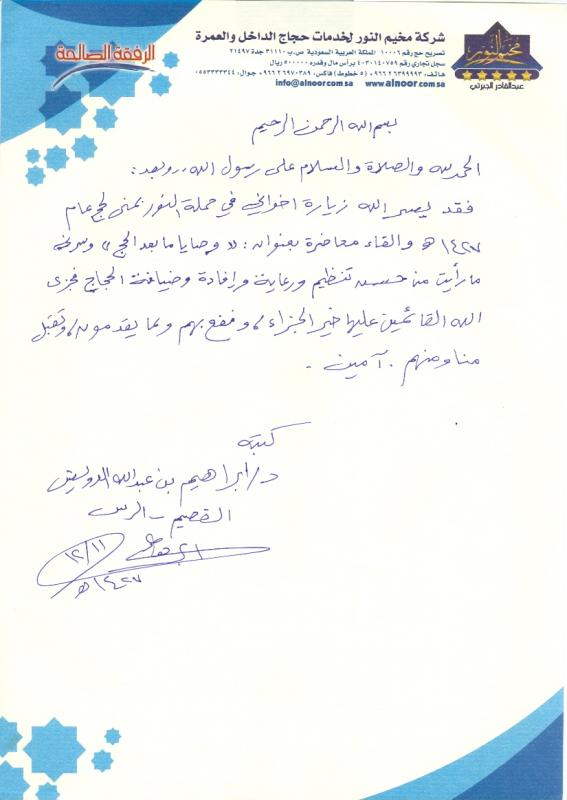 شركة مخيم النور لخدمات حجاج الداخل والعمرة
تصريح حج رقم ١٠٠٠٦ المملكة العربية السعودية ص.ب ٣١١١٠ جدة ٢١٤٩٧
سجل تجاري رقم ٤٠٣٠١٤٠٧٥٩ برأس مال وقدره ٥٠٠٠٠٠ ريال
هاتف: ٦٣٩٩٩٩٣ ٢ ٩٦٦+ (٥ خطوط) فاكس: ٦٩٧٠٣٨٩ ٢ ٩٦٦+ جوال: ٠٥٥٣٣٣٣٣٤٤
info@alnoor.com.sa www.alnoor.com.sa
الرفقة الصالحة
مخيم النور
عبدالقادر الجبرتي
بسم الله الرحمن الرحيم
الحمد لله والصلاة والسلام على رسول الله، وبعد:
فقد يسر الله زيارة اخواني في حملة النور بمنى لحج عام
١٤٢٧هـ والقاء محاضرة بعنوان: «وصايا ما بعد الحج» وسرني
ما رأيت من حسن تنظيم ورعاية وإفادة وضيافة الحجاج فجزى
الله القائمين عليها خير الجزاء، ونفع بهم وبما يقدمون، وتقبل
منا ومنهم. آمين.
كتبه
د/ ابراهيم بن عبدالله الدويش
القصيم - الرس
١٢/١١
١٤٢٧هـ
www.alnoor.com.sa